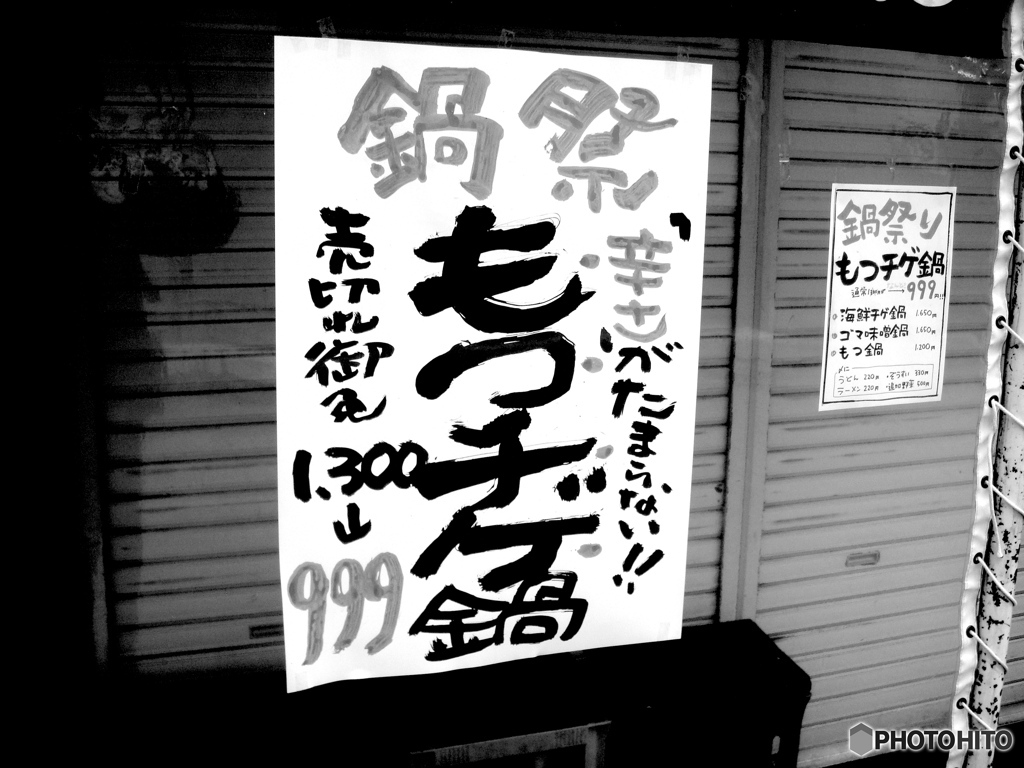 鍋祭
「辛さ」がたまらない!!
もつチゲ鍋
売切れ御免
1,300
999
鍋祭り
もつチゲ鍋
999円!!
海鮮チゲ鍋 1,650円
ゴマ味噌鍋 1,650円
もつ鍋 1,200円
うどん 220円 ・ぞうすい 330円
ラーメン 220円 ・追加野菜 500円
PHOTOHITO